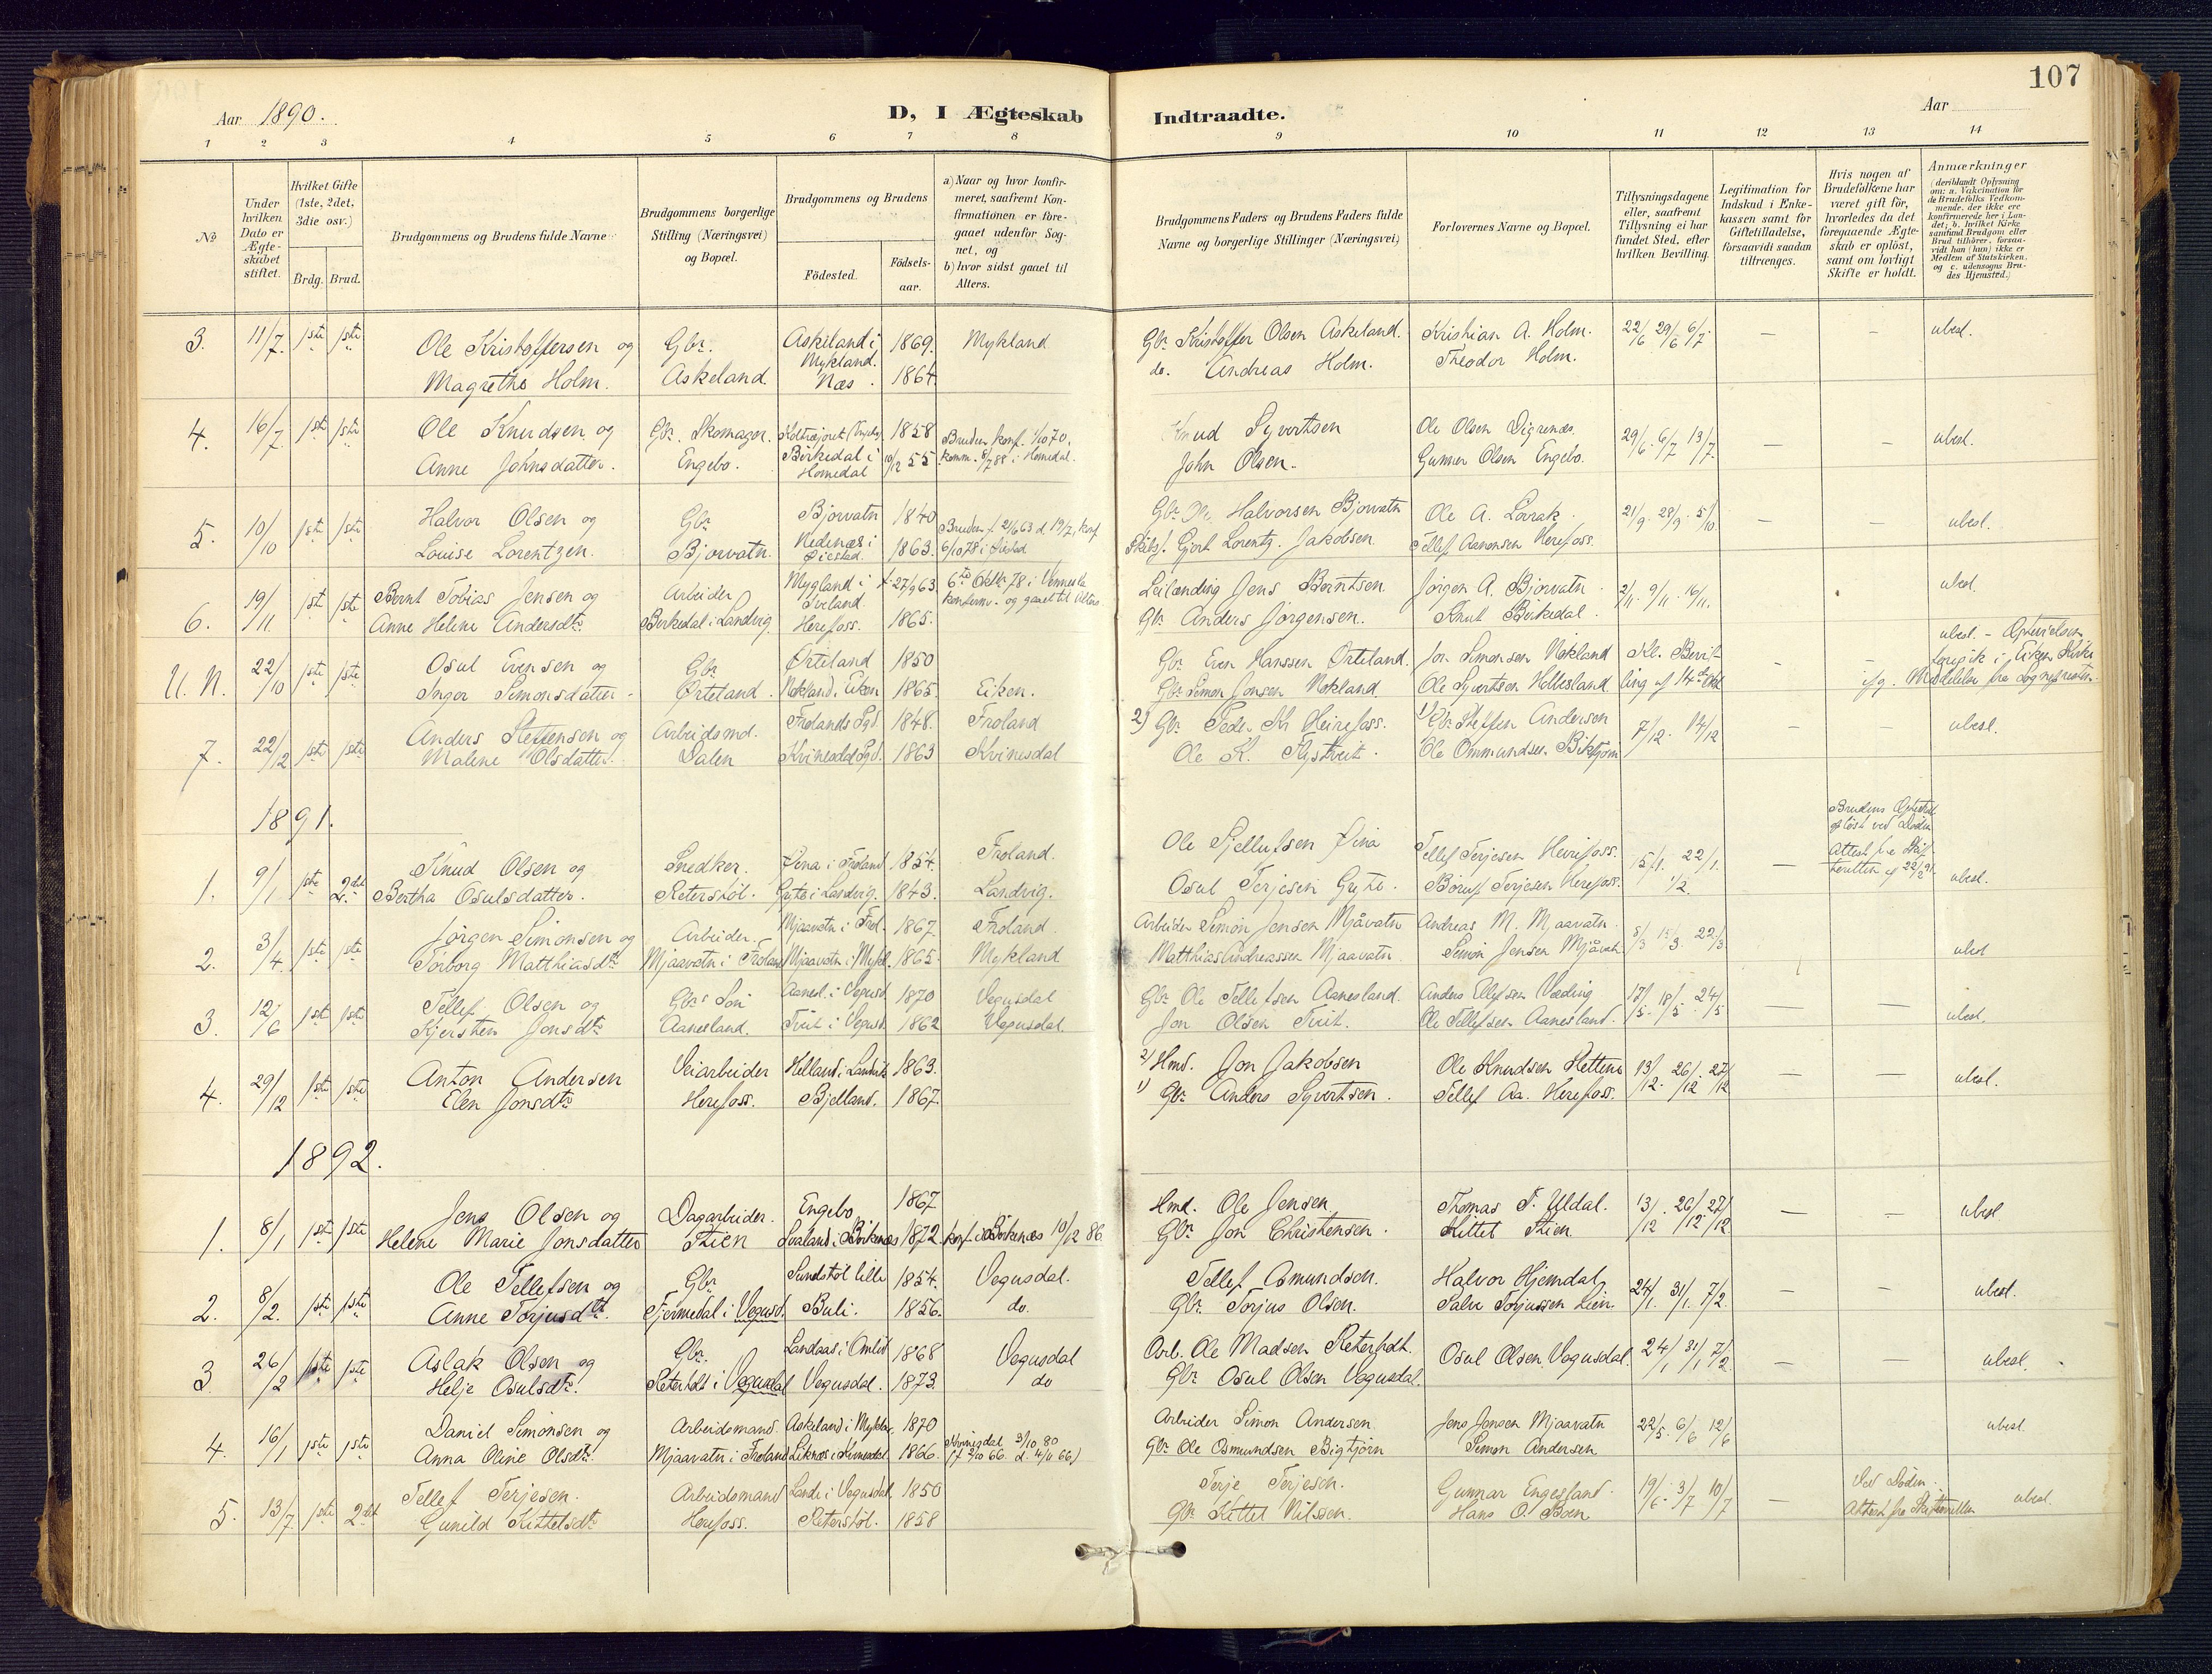 107
Aar 1890.
D, I Ægteskab Indtraadte.
Aar
1 2 3 4 5 6 7 8 9 10 11 12 13 14
No
Under hvilken Dato er Ægteskabet stiftet.
Hvilket Gifte (1ste, 2det, 3die osv.)
Brdg. Brud.
Brudgommens og Brudens fulde Navne
Brudgommens borgerlige Stilling (Næringsvei) og Bopæl.
Brudgommens og Brudens
Födested.
Födsels-aar.
a) Naar og hvor konfirmeret, saafremt Konfirmationen er foregaaet udenfor Sognet, og
b) hvor sidst gaaet til Alters.
Brudgommens Faders og Brudens Faders fulde Navne og borgerlige Stillinger (Næringsvei)
Forlovernes Navne og Bopæl.
Tillysningsdagene eller, saafremt Tillysning ei har fundet Sted, efter hvilken Bevilling.
Legitimation for Indskud i Enkekassen samt för Giftetilladelse, forsaavidt saadan tiltrænges.
Hvis nogen af Brudefolkene har været gift för, hvorledes da det foregaaende Ægteskab er oplöst, samt om lovligt Skifte er holdt.
Anmærkninger
(deriblandt Oplysning om: a. Vakcination for de Brudefolks Vedkommende, der ikke ere konfirmerede her i Landet; b. hvilket Kirkesamfund Brudgom eller Brud tilhörer, forsaavidt han (hun) ikke er Medlem af Statskirken, og c. udensogns Brudes Hjemsted.)
3. 11/7. 1ste 1ste Ole Kristoffersen og Gbr. Askeland i Mykland. 1869. Mykland Gbr. Kristoffer Olsen Askeland. Kristian A. Holm. 22/6 29/6 6/7. — — ubesl.
Magrethe Holm. Askeland. Næs. 1864. do. Andreas Holm. Theodor Holm.
4. 16/7. 1ste 1ste Ole Knudsen og Gbr. Skomager. 1858 Bruden konf. 1/10 70, Knud Syvertsen Ole Olsen Digrenæs. 29/6. 6/7 13/7 — — ubesl.
Anne Johnsdatter. Engebo. Birkedal i Homedal 10/12 55 komm. 8/7 88 i Homedal. John Olsen. Gunner Olsen Engebo.
5. 10/10 1ste 1ste Halvor Olsen og Gbr. Bjorvatn 1840 Bruden f. 21/6 63 d. 19/7, konf Gbr. Ole Halvorsen Bjorvatn Ole A. Lovrak. 21/9. 28/9. 5/10 — — ubesl.
Louise Lorentzen. Bjorvatn. Nedenæs i Öiestad. 1863. 6/10 78 i Öiestad Skibsf. Gjert Lorentz Jakobsen Tellef Aanonsen Herefoss.
6. 19/11. 1ste 1ste Bernt Tobias Jensen og Arbeider Mygland i Iveland. f. 27/9 63. 6te Oktbr. 78 i Vennesla Leilænding Jens Berntsen Jørgen A. Bjorvatn. 2/11. 9/11. 16/11. ubesl.
Anne Helene Andersdtr. Birkedal i Landvig. Herefoss. 1865. konfirm. og gaaet til Alters Gbr. Anders Jørgensen. Knut Birkedal.
U. N. 22/10 1ste 1ste Osul Evensen og Gbr. Ørteland 1850 Gbr. Even Hanssen Ørteland. Jon Simonsen Nokland Kl. Bevil- — — ubesl. — Ægtevielsen
Inger Simonsdatter Ørteland. Nokland i Eiken 1865. Eiken. Gbr. Simon Jonsen Nokland Ole Syvertsen Hollesland. ling af 14de Okt foregik i Eiken Kirke ifg. Meddelelse fra Sognepresten.
7. 22/12 1ste 1ste Anders Steffensen og Arbeidsmd. Frolands Sgd. 1848. Froland 2) Gbr. Peder K. Heirefoss. 1) Gbr. Steffen Andersen 7/12. 14/12 — — ubesl.
Malene Olsdatter. Dalen Kvinesdal Sgd. 1863 Kvinesdal Ole K. Flystveit. Ole Ommundsen Biktjørn
1891.
1. 9/1 1ste 2det Knud Olsen og Snedker. Øina i Froland 1854. Froland. Ole Øina Tellef Terjesen Heirefoss. 15/1. 22/1. 1/2. — Brudens Ægteskab opløst ved Døden. Attest fra Skifteretten af 22/2 91. ubesl.
Bertha Osulsdatter. Reterstöl. Gryte i Landvig. 1843. Landvig. Osul Terjesen Gryte. Børuf Terjesen Herefoss.
2. 3/4. 1ste 1ste Jørgen Simonsen og Arbeider. Mjaavatn i Frol. 1867. Froland. Arbeider Simon Jensen Mjåvatn Andreas M. Mjaavatn 8/3 15/3. 22/3 ubesl
Torborg Matthiasdtr. Mjaavatn i Froland Mjaavatn i Mykl. 1865. Mykland Matthias Andreassen Mjaavatn. Simon Jensen Mjåvatn
3. 12/6 1ste 1ste Tellef Olsen og Gbrs Søn Aanesl. i Vegusd. 1870 Vegusdal Gbr. Ole Tellefsen Aanesland. Anders Ellefsen Væding 17/5. 18/5. 24/5 — — ubesl.
Kjersten Jonsdtr. Aanesland. Tveit i Vegusd. 1862 Vegusdal. Jon Olsen Tveit. Ole Tellefsen Aanesland.
4. 29/12 1ste 1ste Anton Andersen Veiarbeider Helland i Landvik 1863. 2) Hmd. Jon Jakobsen Ole Knudsen Slettene 13/12. 26/12. 27/12 — — ubesl.
Elen Jonsdtr. Herefoss. Bjelland. 1867. 1) Gbr. Anders Syvertsen. Tellef Aa. Herefoss.
1892.
1. 8/1 1ste 1ste Jens Olsen og Dagarbeider. Engebo 1867 Hmd. Ole Jensen Thomas T. Uldal. 13/12. 26/12. 27/12 — — ubesl
Helene Marie Jonsdatter Stien Svaland i Birkenes 1872. konf. i Birkenes 10/12 86 Gbr. Jon Christensen. Kittel Stien.
2. 8/2. 1ste 1ste Ole Tellefsen og Gbr. Sundstöl lille 1854. Vegusdal. Tellef Asmundsen. Halvor Hjemdal, 24/1. 31/1. 7/2. — — ubesl.
Anne Torjusdtr. Tjermedal i Vegusd. Buli. 1856. do. Gbr. Torjus Olsen. Salve Torjussen Lien.
3 26/2 1ste 1ste Aslak Olsen og Gbr. Landaas i Omlid 1868 Vegusdal Arb. Ole Madsen Reterholt. Osul Olsen Vegusdal. 24/1 31/1 7/2 — — ubesl.
Helje Osulsdtr. Reterholt i Vegusdal Vegusdal. 1873. do Gbr. Osul Olsen Vegusdal.
4. 16/1 1ste 1ste Daniel Simonsen og Arbeidsmand. Askeland i Mykla. 1870 Arbeider Simon Andersen. Jens Jensen Mjaavatn 22/5. 6/6 12/6 ubesl.
Anna Oline Olsdtr. Mjaavatn i Froland Leknæs i Kvinesdal. 1866. Kvinesdal 3/10 80 (f. 2/10 66. d. 4/11 66) Gbr. Ole Osmundsen Bigtjörn Simon Andersen
5. 13/7. 1ste 2det Tellef Terjesen. Arbeidsmand Lande i Vegusdal, 1850 Terje Terjesen. Gunnar Engesland. 19/6. 3/7 10/7 — Ved Døden. Attest fra Skifteretten ubesl.
Gunild Kittelsdtr. Herefoss. Reterstöl. 1858 Gbr. Kittel Nilssen. Hans O. Boen